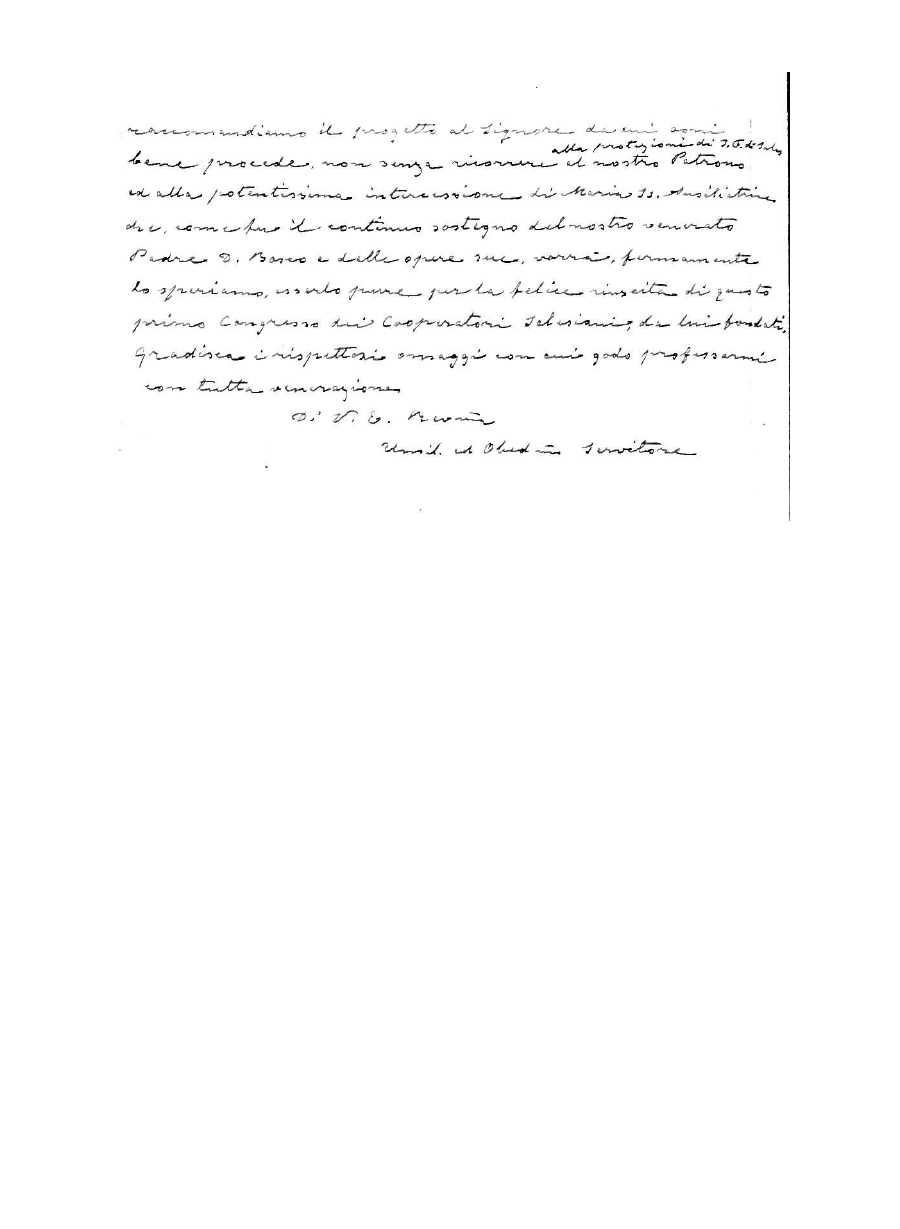 raccomandiamo il progetto al Signore da cui ogni
alla protezione di S. F. di Sales
bene procede, non senza ricorrere al nostro Patrono
ed alla potentissima intercessione di Maria SS. Ausiliatrice
che, come fu il continuo sostegno del nostro venerato
Padre D. Bosco e delle opere sue, vorrà, fermamente
lo speriamo, esserlo pure per la felice riuscita di questo
primo Congresso dei Cooperatori Salesiani, da lui fondati.
Gradisca i rispettosi omaggi con cui godo professarmi
con tutta venerazione
Di V. E. Rev.ma
Umil. ed Obed.mo Servitore